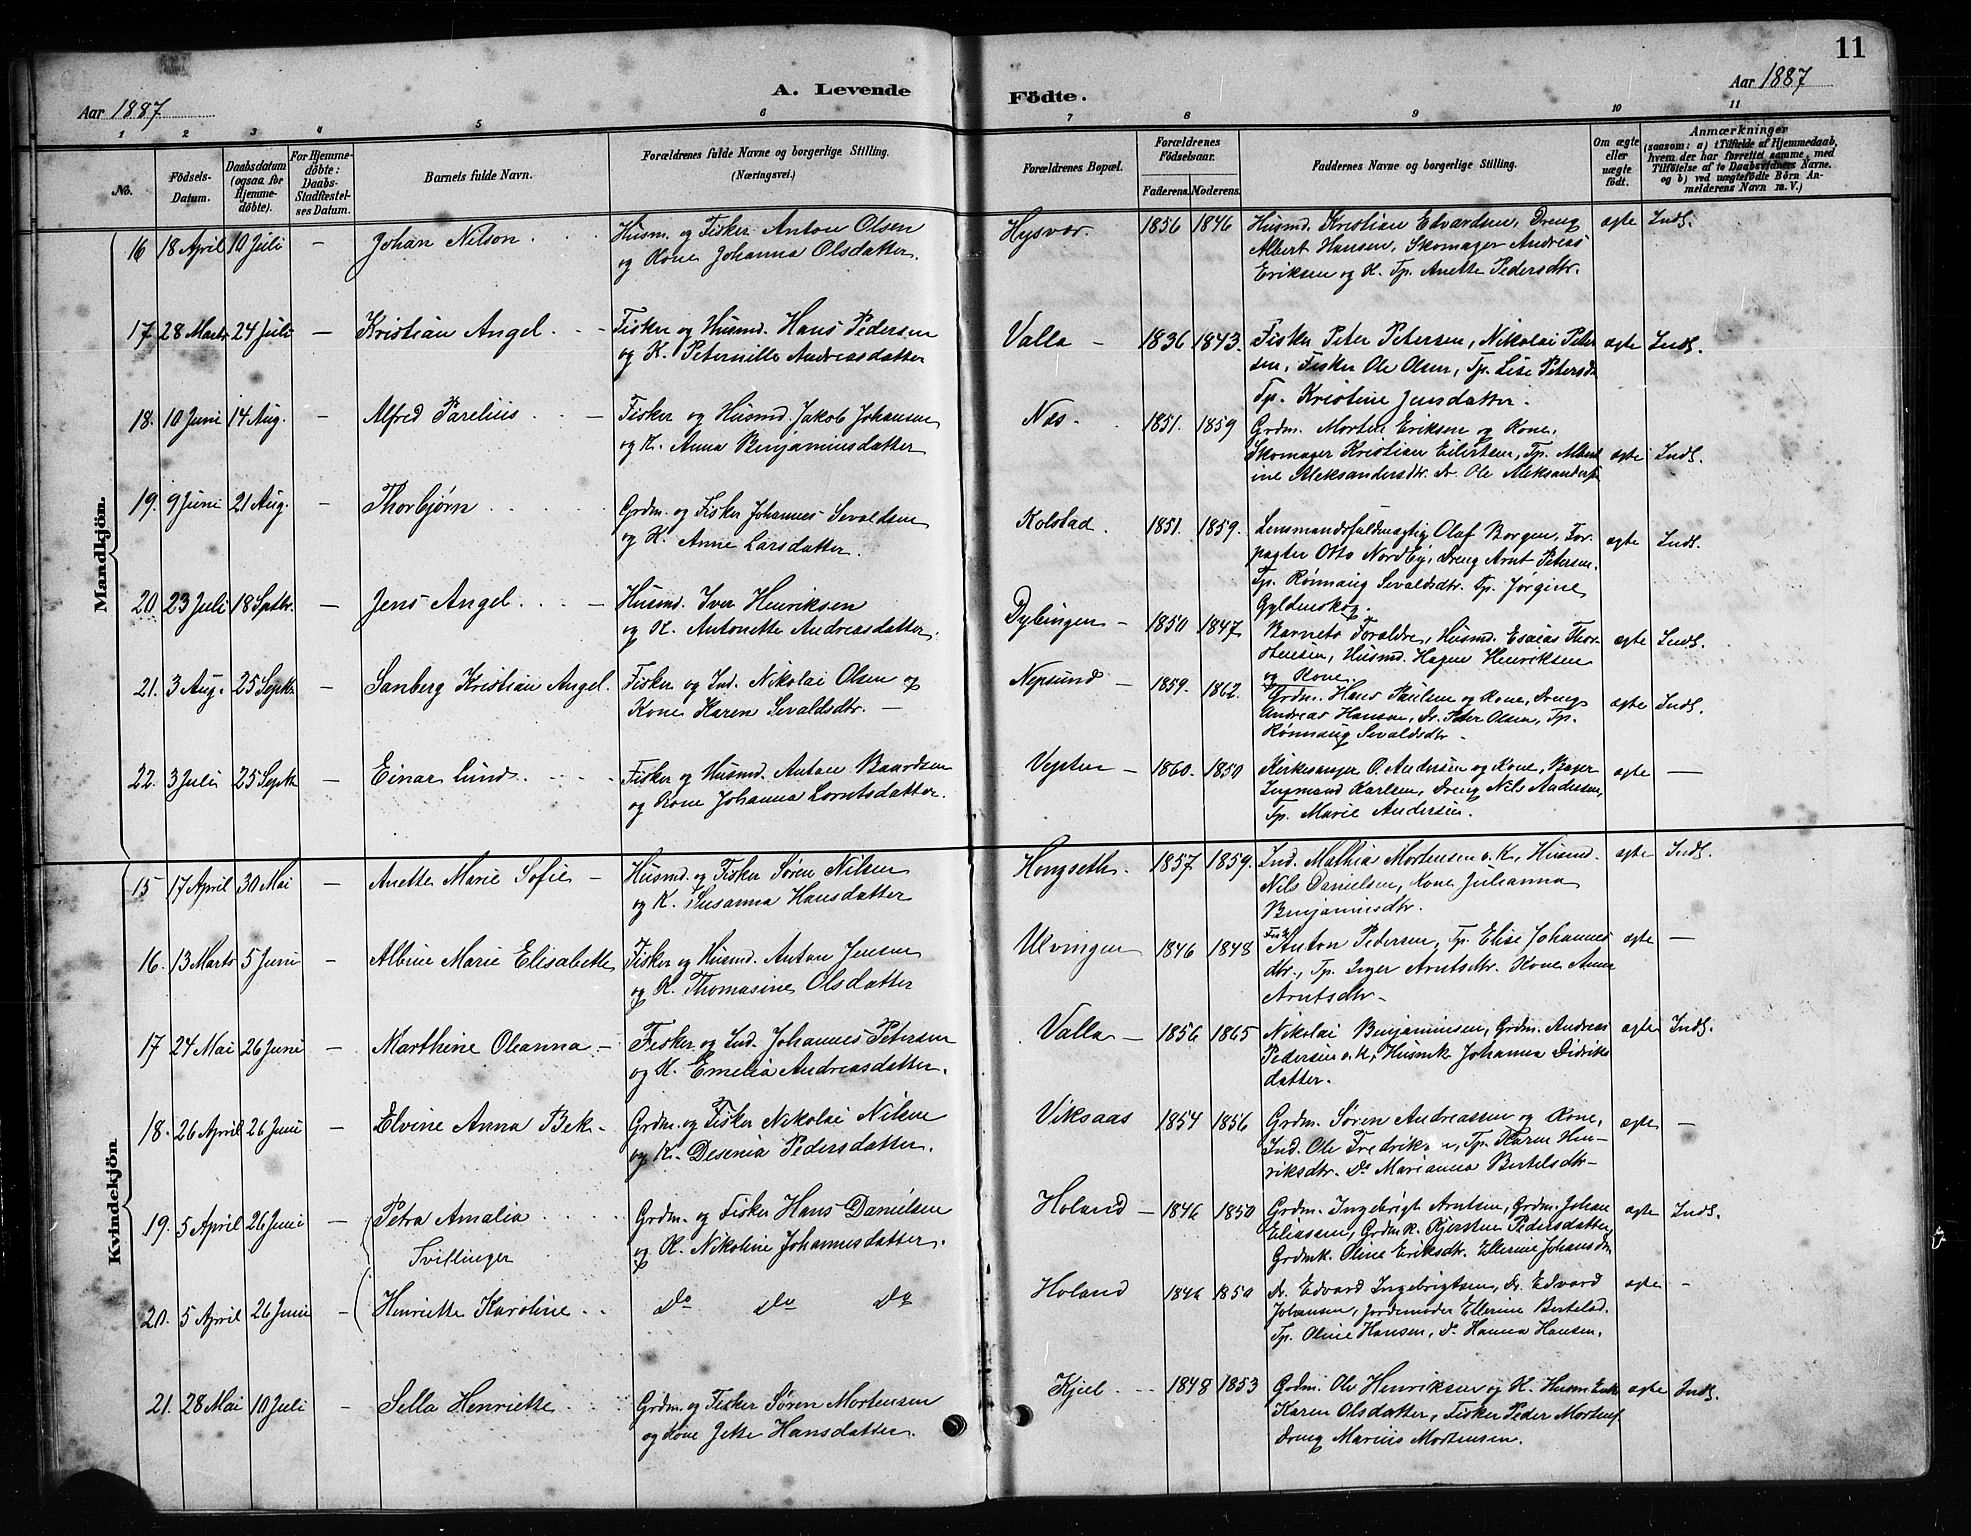 11
Aar 1887 A. Levende Födte. Aar 1887
1 2 3 4 5 6 7 8 9 10 11
No.
Födsels-
Datum.
Daabsdatum
(ogsaa for
Hjemme-
döbte).
For Hjemme-
döbte:
Daabs-
Stadfæstel-
ses Datum.
Barnets fulde Navn.
Forældrenes fulde Navne og borgerlige Stilling.
(Næringsvei.)
Forældrenes Bopæl.
Forældrenes
Födselsaar.
Faderens. Moderens.
Faddernes Navne og borgerlige Stilling.
Om ægte
eller
uægte
födt.
Anmærkninger
(saasom: a) i Tilfælde af Hjemmedaab,
hvem der har forrettet samme, med
Tilföielse af to Daabsvidners Navne.
og b) ved uægtefödte Börn An-
melderens Navn m. V.)
Mandkjön.
16 18 April 10 Juli — Johan Nilson. Husm. og Fisker Anton Olsen
og Kone Johanna Olsdatter.
Hysvær. 1856 1846 Husmd. Kristian Edvardsen, Dreng
Albert Hansen, Skomager Andreas
Eriksen og K. Tp. Anette Pedersdtr.
ægte Inds.
17. 28 Marts 24 Juli — Kristian Angel. Fisker og Husmd. Hans Pedersen
og K. Petternille Andreasdatter
Valla — 1836 1843. Fisker Peter Petersen, Nikolai Peter
sen, Fisker Ole Olsen, Tp. Lise Petersd
Tp. Kristine Jensdatter.
ægte Inds.
18. 10 Juni 14 Aug. — Alfred Parelius — Fisker og Husmd. Jakob Johansen
og K. Anna Benjaminsdatter
Næs. 1851. 1859 Grdm. Morten Eriksen og Kone,
Skomager Kristian Eilertsen, Tp. Albert
ine Aleksandersdtr. Dr. Ole Aleksanders
ægte Inds.
19. 9 Juni 21 Aug. — Thorbjørn Grdm. og Fisker Johannes Sevaldsen
og K. Anne Larsdatter.
Kolstad. 1851. 1859. Lensmandsfuldmægtig Olaf Borgen, For
pagter Otto Nordby, Dreng Arnt Petersen.
Tp. Rønnaug Sevaldsdtr. Tp. Jørgine
Gyldenskog.
ægte Inds.
20. 23 Juli 18 Septbr. — Jens Angel. — Husmd. Iver Henriksen
og K. Antonette Andreasdatter.
Dybingen — 1850 1847 Barnets Forældre, Husmd. Esaias Thor-
stensen, Husmd. Hagen Henriksen
og Kone.
ægte Inds.
21. 3 Aug. 25 Septb — Sanberg Kristian Angel. Fisker og Ind. Nikolai Olsen og
Kone Karen Sevaldsdtr. —
Nepsund — 1859. 1862. Grdm. Hans Paulsen og Kone, Dreng
Andreas Hansen, Dr. Peter Olsen, Tp.
Rønnaug Sevaldsdtr.
ægte Inds.
22. 3 Juli 25 Septb — Einar Lund. Fisker og Husmd. Anton Baardsen
og Kone Johanna Lorntsdatter.
— 1860. 1850 Kirkesanger O. Andersen og Kone, Bager
Ingmand Karlsen, Dreng Nils Andersen,
Tp. Marie Andersen.
ægte —
Kvindekjön
15 17 April 30 Mai — Anette Marie Sofie — Husmd. og Fisker Søren Nilsen
og K. Susanna Hansdatter
Hongseth. 1857 1859. Ind. Mathia Mortensen o. K., Husmd.
Nils Danielsen, Kone Julianna
Benjaminsdtr.
ægte Inds.
16. 13 Marts 5 Juni — Albine Marie Elisabeth Fisker og Husmd. Anton Jensen
og K. Thomasine Olsdatter
Ulvingen 1846 1848 Fisk. Anton Pedersen, Tp. Elise Johannes
dtr., Tp. Inger Arntsdtr. Kone Anne
Arntsdtr —
ægte —
17 24 Mai 26 Juni — Marthine Oleanna — Fisker og Ind. Johannes Petersen
og K. Emelia Andreasdatter.
Valla — 1856 1865 Nikolai Benjaminsen, Grdm. Andreas
Pedersen o. K, Husmk Johanna Didriks
datter.
ægte Inds.
18. 26 April 26 Juni — Elvine Anna Bek — Grdm. og Fisker Nikolai Nilsen
og K. Desenia Pedersdatter.
Viksaas 1854 1856 Grdm. Søren Andreassen og Kone,
Ind. Ole Fredriksen, Tp. Karen Hen-
riksdtr. Do Marianna Bertelsdtr —
ægte —
19. 5 April 26 Juni — Petra Amalia Grdm. og Fisker Hans Danielsen
Tvillinger og K. Nikoline Johannesdatter.
Holand — 1846 1850 Grdm. Ingebrigt Arntsen, Grdm. Johan
Eliassen, Grdmk. Kjersten Pedersdatter,
Grdmk. Oline Eriksdtr. Ellerine Johansdtr
ægte Inds.
20. 5 April 26 Juni — Henriette Karoline Do Do Do
Holand 1846 1850 Dr. Edvard Ingebrigtsen, Dr. Edvard
Johansen, Jordemoder Ellerine Bertelsd.
Tp. Oline Hansen, Do Hanna Hansen.
ægte —
21. 28 Mai 10 Juli — Sella Henriette Grdm. og Fisker Søren Mortensen
og Kone Jette Hansdatter.
Kjul — 1848 1853 Grdm. Ole Henriksen og K. Husm. Enke
Karen Olsdatter, Fisker Peder Mortens
Dreng Marius Mortensen.
ægte Inds.